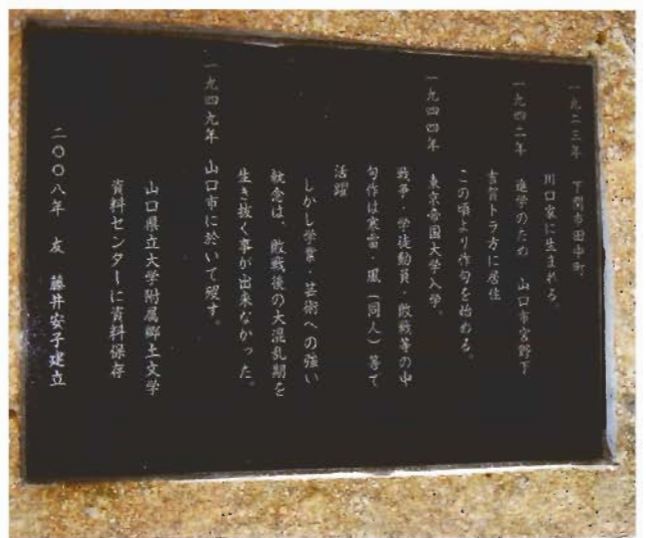 一九二三年 下関市田中町
川口家に生まれる。
一九四二年 進学のため 山口市宮野下
吉賀トラ方に居住
この頃より作句を始める。
一九四四年 東京帝国大学入学。
戦争・学徒動員・敗戦等の中
句作は寒雷・風(同人)等で
活躍
しかし学業・芸術への強い
執念は、敗戦後の大混乱期を
生き抜く事が出来なかった。
一九四九年 山口市に於いて歿す。
山口県立大学附属郷土文学
資料センターに資料保存
二〇〇八年 友 藤井安子建立